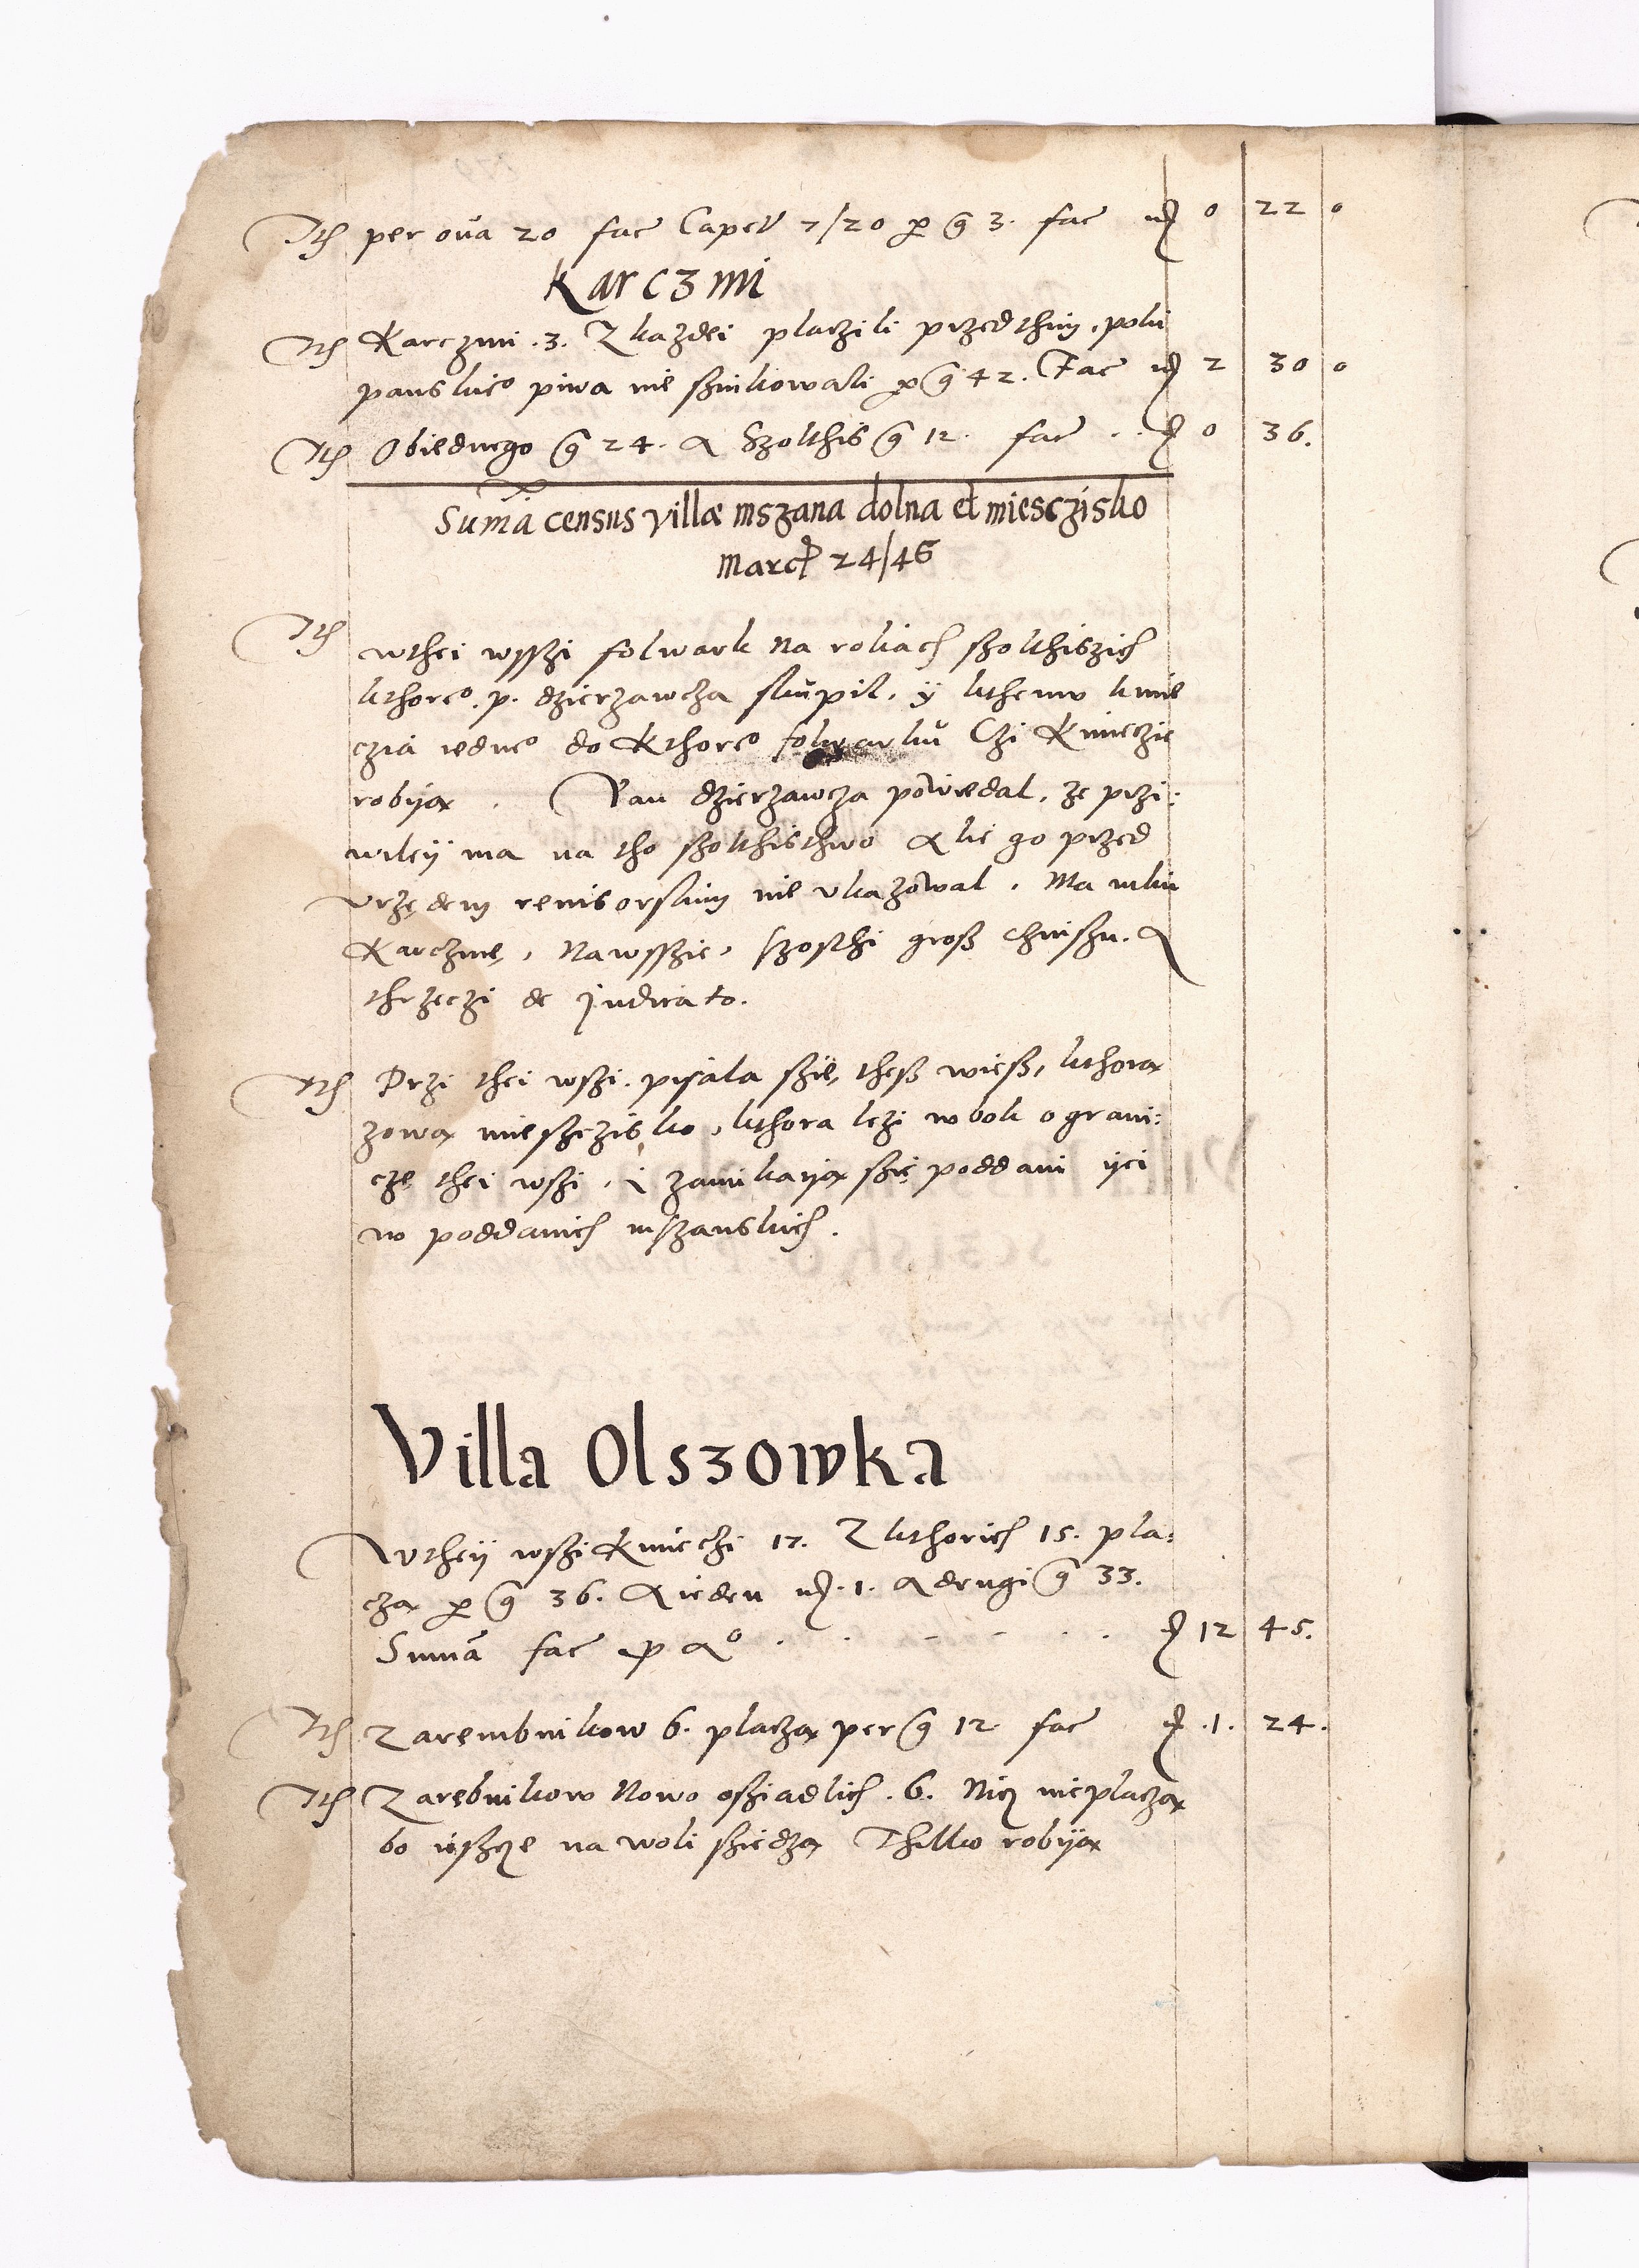 Itē per oua 20 fac Capet 7/20 p g 3. fac mr 0 22 0
Karczmi
Itē Karczmi .3. Z kazdei placzili przed thim, poki
panskieo piwa nie szinkowali p g 42. Fac mr 2 30 0
Itē Obiednego g 24. A Szolthis g 12. fac mr 0 36.
Suma census villæ mszana dolna et miesczisko
marc 24/46
Itē wthei wsszi folwark Na roliach szolthiszich
kthoreo p. dzierzawcza skupil, ÿ kthemu kmie
czia iedneo do kthoreo folwarku Czi Kmieczie
robÿa . Pan dzierzawcza powiedal, ze przi:
wileÿ ma na tho szolthisthwo Ale go przed
vrzędem reuisorskim nie vkazowal. Ma wthei
Karczmę, Nawsszie, szosthi gross czinszu. A
thrzeczi de judicato.
Itē Przi thei wszi, pisala szię, thess wiess, kthora
zowa mieszczisko, kthora lezi wbok o grani:
czę thei wszi, i zamikaÿa szię poddani ÿei
w poddanich mszanskich.
Villa Olszowka
Wtheÿ wszi Kmieczi 17. Z kthorich 15. pla:
cza p g 36. A ieden mr .1. A drugi g 33.
Suma fac p Ao mr 12 45.
Itē Zarembnikow 6. placza per g 12 fac mr .1. 24.
Itē Zarębnikow Nowo osziadlich .6. Nicz nieplacza
bo iesscze na woli sziedza Thilko robÿa